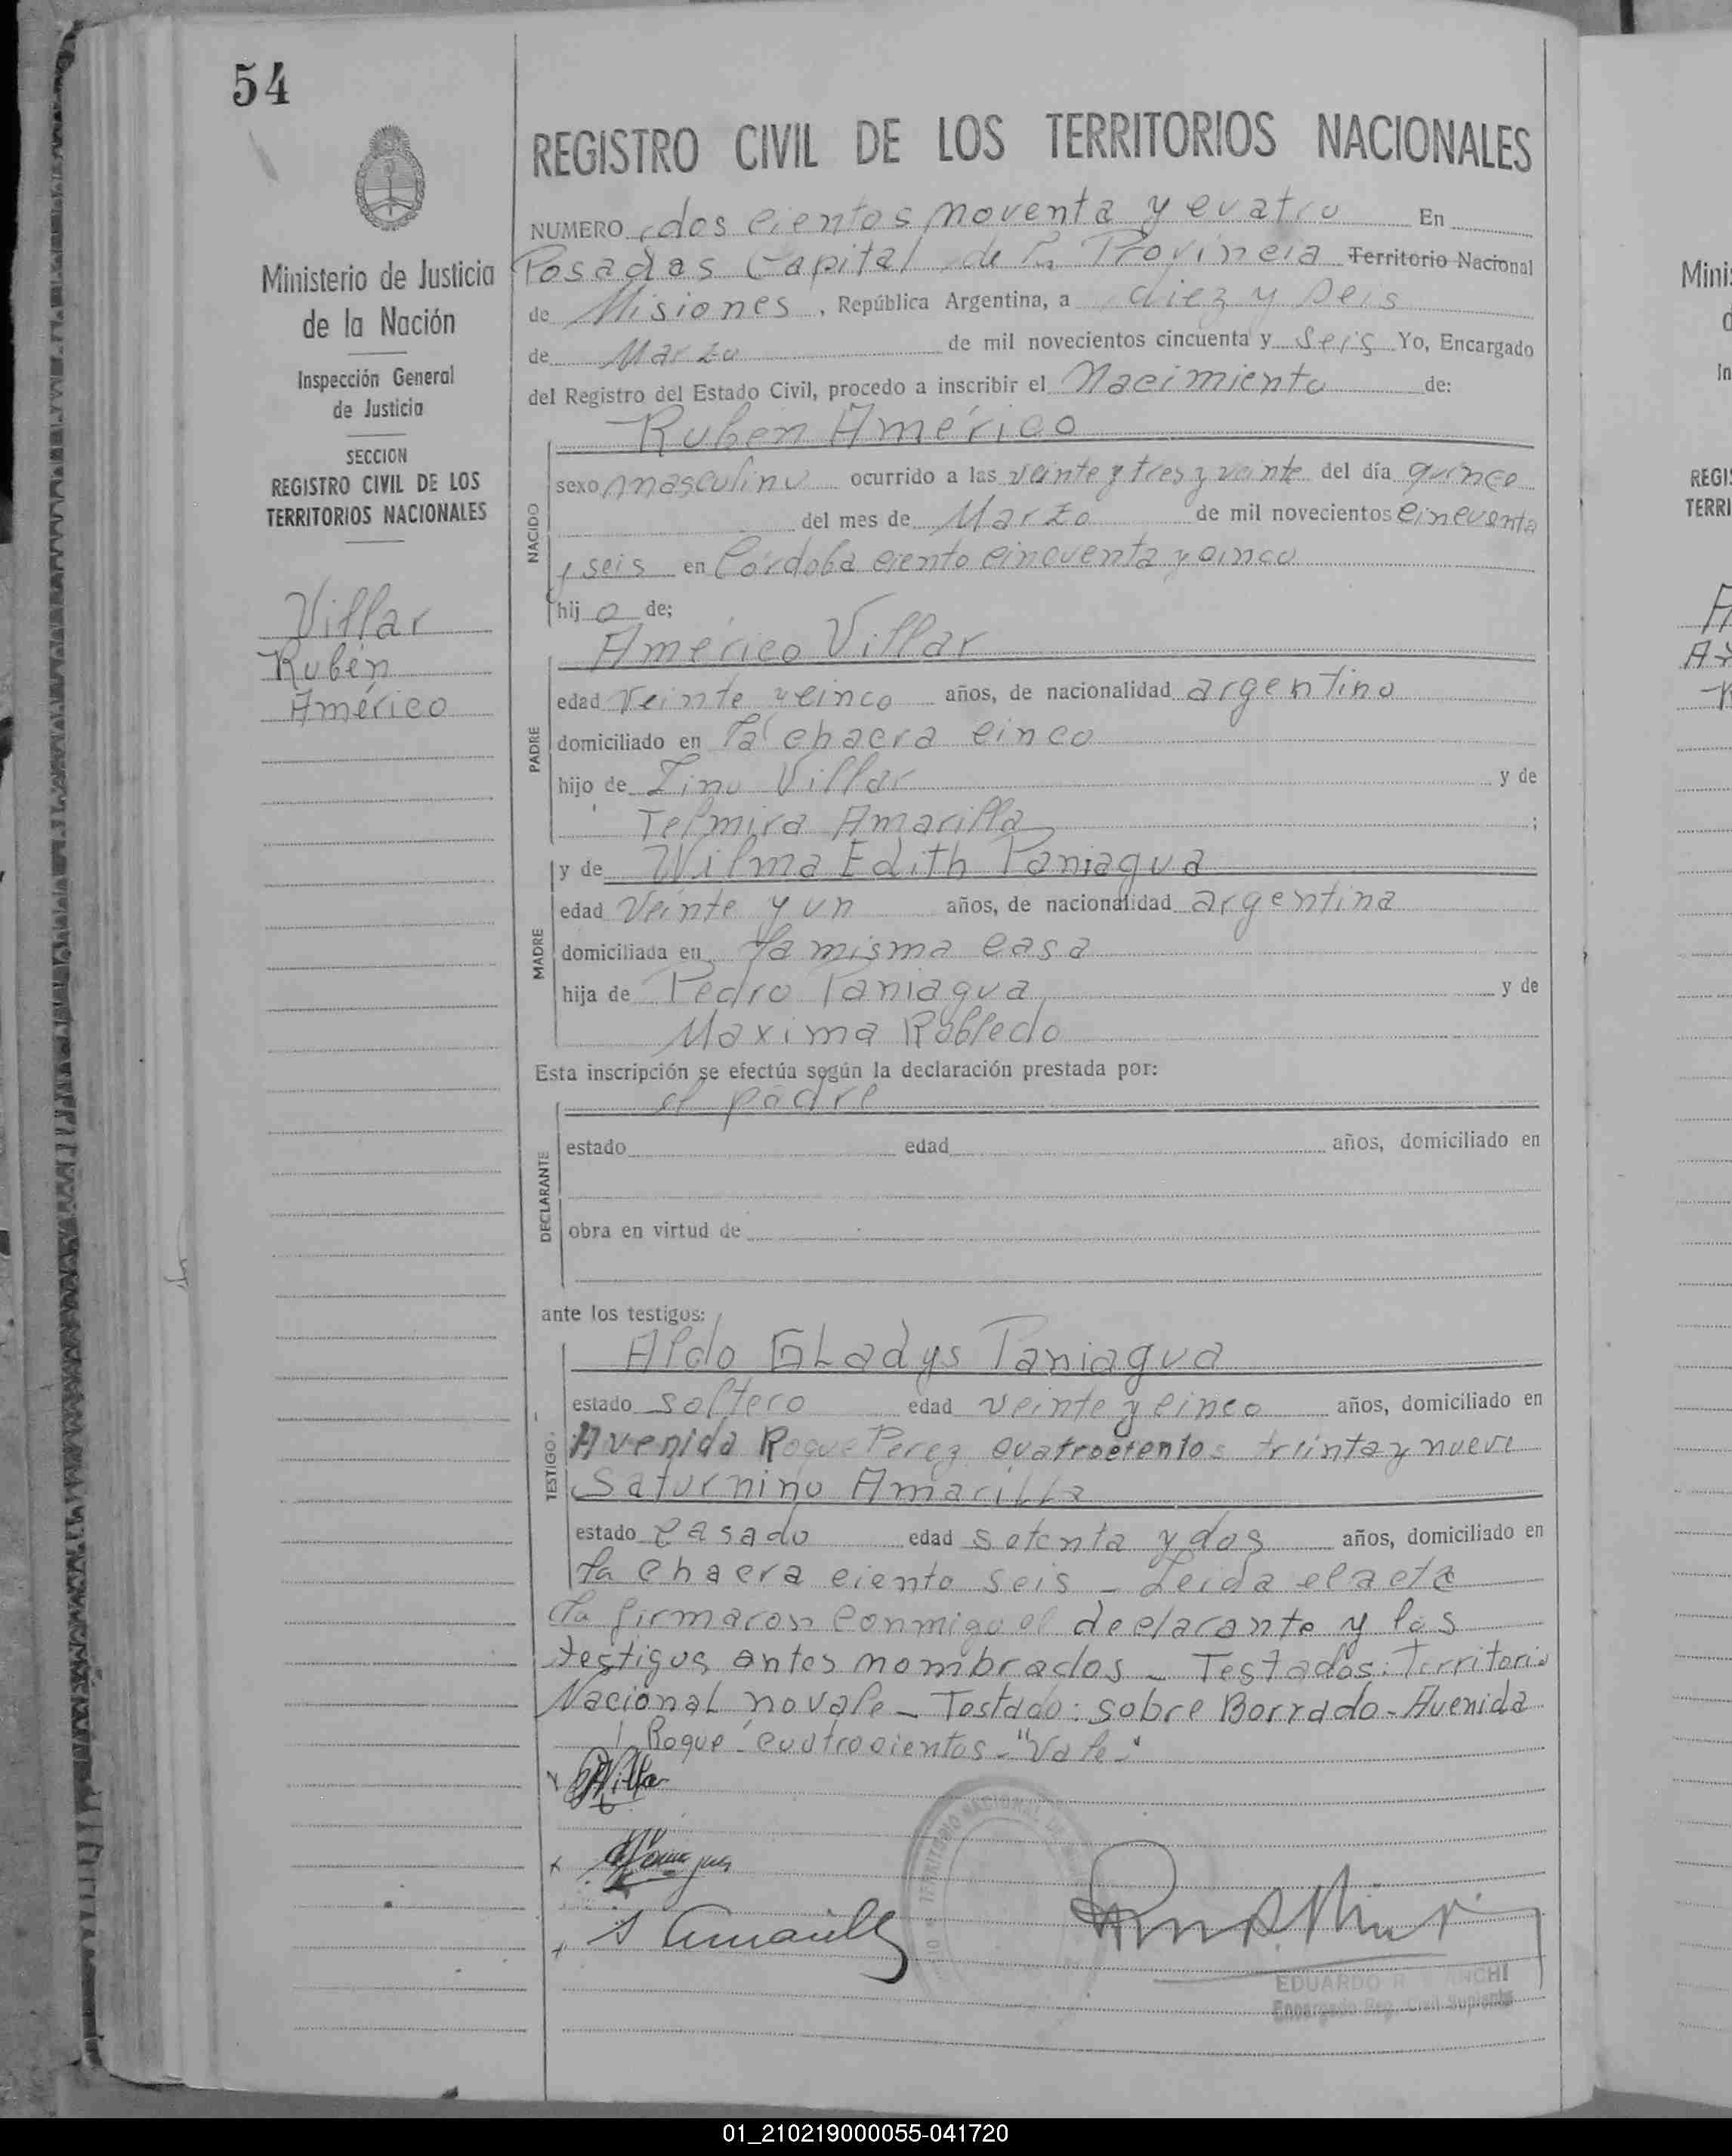 54
Ministerio de Justicia
de la Nación
Inspección General
de Justicia
SECCION
REGISTRO CIVIL DE LOS
TERRITORIOS NACIONALES
Villar
Rubén
Américo
REGISTRO CIVIL DE LOS TERRITORIOS NACIONALES
NUMERO dos cientos noventa y cuatro En
Posadas Capital de la Provincia Territorio Nacional
de Misiones, República Argentina, a diez y seis
de Marzo de mil novecientos cincuenta y seis Yo, Encargado
del Registro del Estado Civil, procedo a inscribir el Nacimiento de:
Rubén Américo
NACIDO
sexo masculino ocurrido a las veinte y tres y veinte del día quince
del mes de Marzo de mil novecientos cincuenta
y seis en Córdoba ciento cincuenta y cinco
hij o de;
PADRE
Américo Villar
edad veinte y cinco años, de nacionalidad argentino
domiciliado en la chacra cinco
hijo de Lino Villar y de
Telmira Amarilla ;
MADRE
y de Wilma Edith Paniagua
edad veinte y un años, de nacionalidad argentina
domiciliada en la misma casa
hija de Pedro Paniagua y de
Maxima Robledo
Esta inscripción se efectúa según la declaración prestada por:
DECLARANTE
el padre
estado edad años, domiciliado en
obra en virtud de
ante los testigos:
TESTIGO
Aldo GLadys Paniagua
estado soltero edad veinte y cinco años, domiciliado en
Avenida Roque Perez cuatrocientos treinta y nueve
Saturnino Amarilla
estado casado edad setenta y dos años, domiciliado en
la chacra ciento seis - Leida el acta
la firmaron conmigo el declarante y los
testigos antes nombrados - Testados: Territorio
Nacional no vale - Testado: sobre Borrado - Avenida
Roque - cuatrocientos - "Vale -"
S Amarilla
TERRITORIO NACIONAL DE
EDUARDO R. BIANCHI
Encargado Reg. Civil Suplente
Minis
REGIS
TERRI
01_210219000055-041720